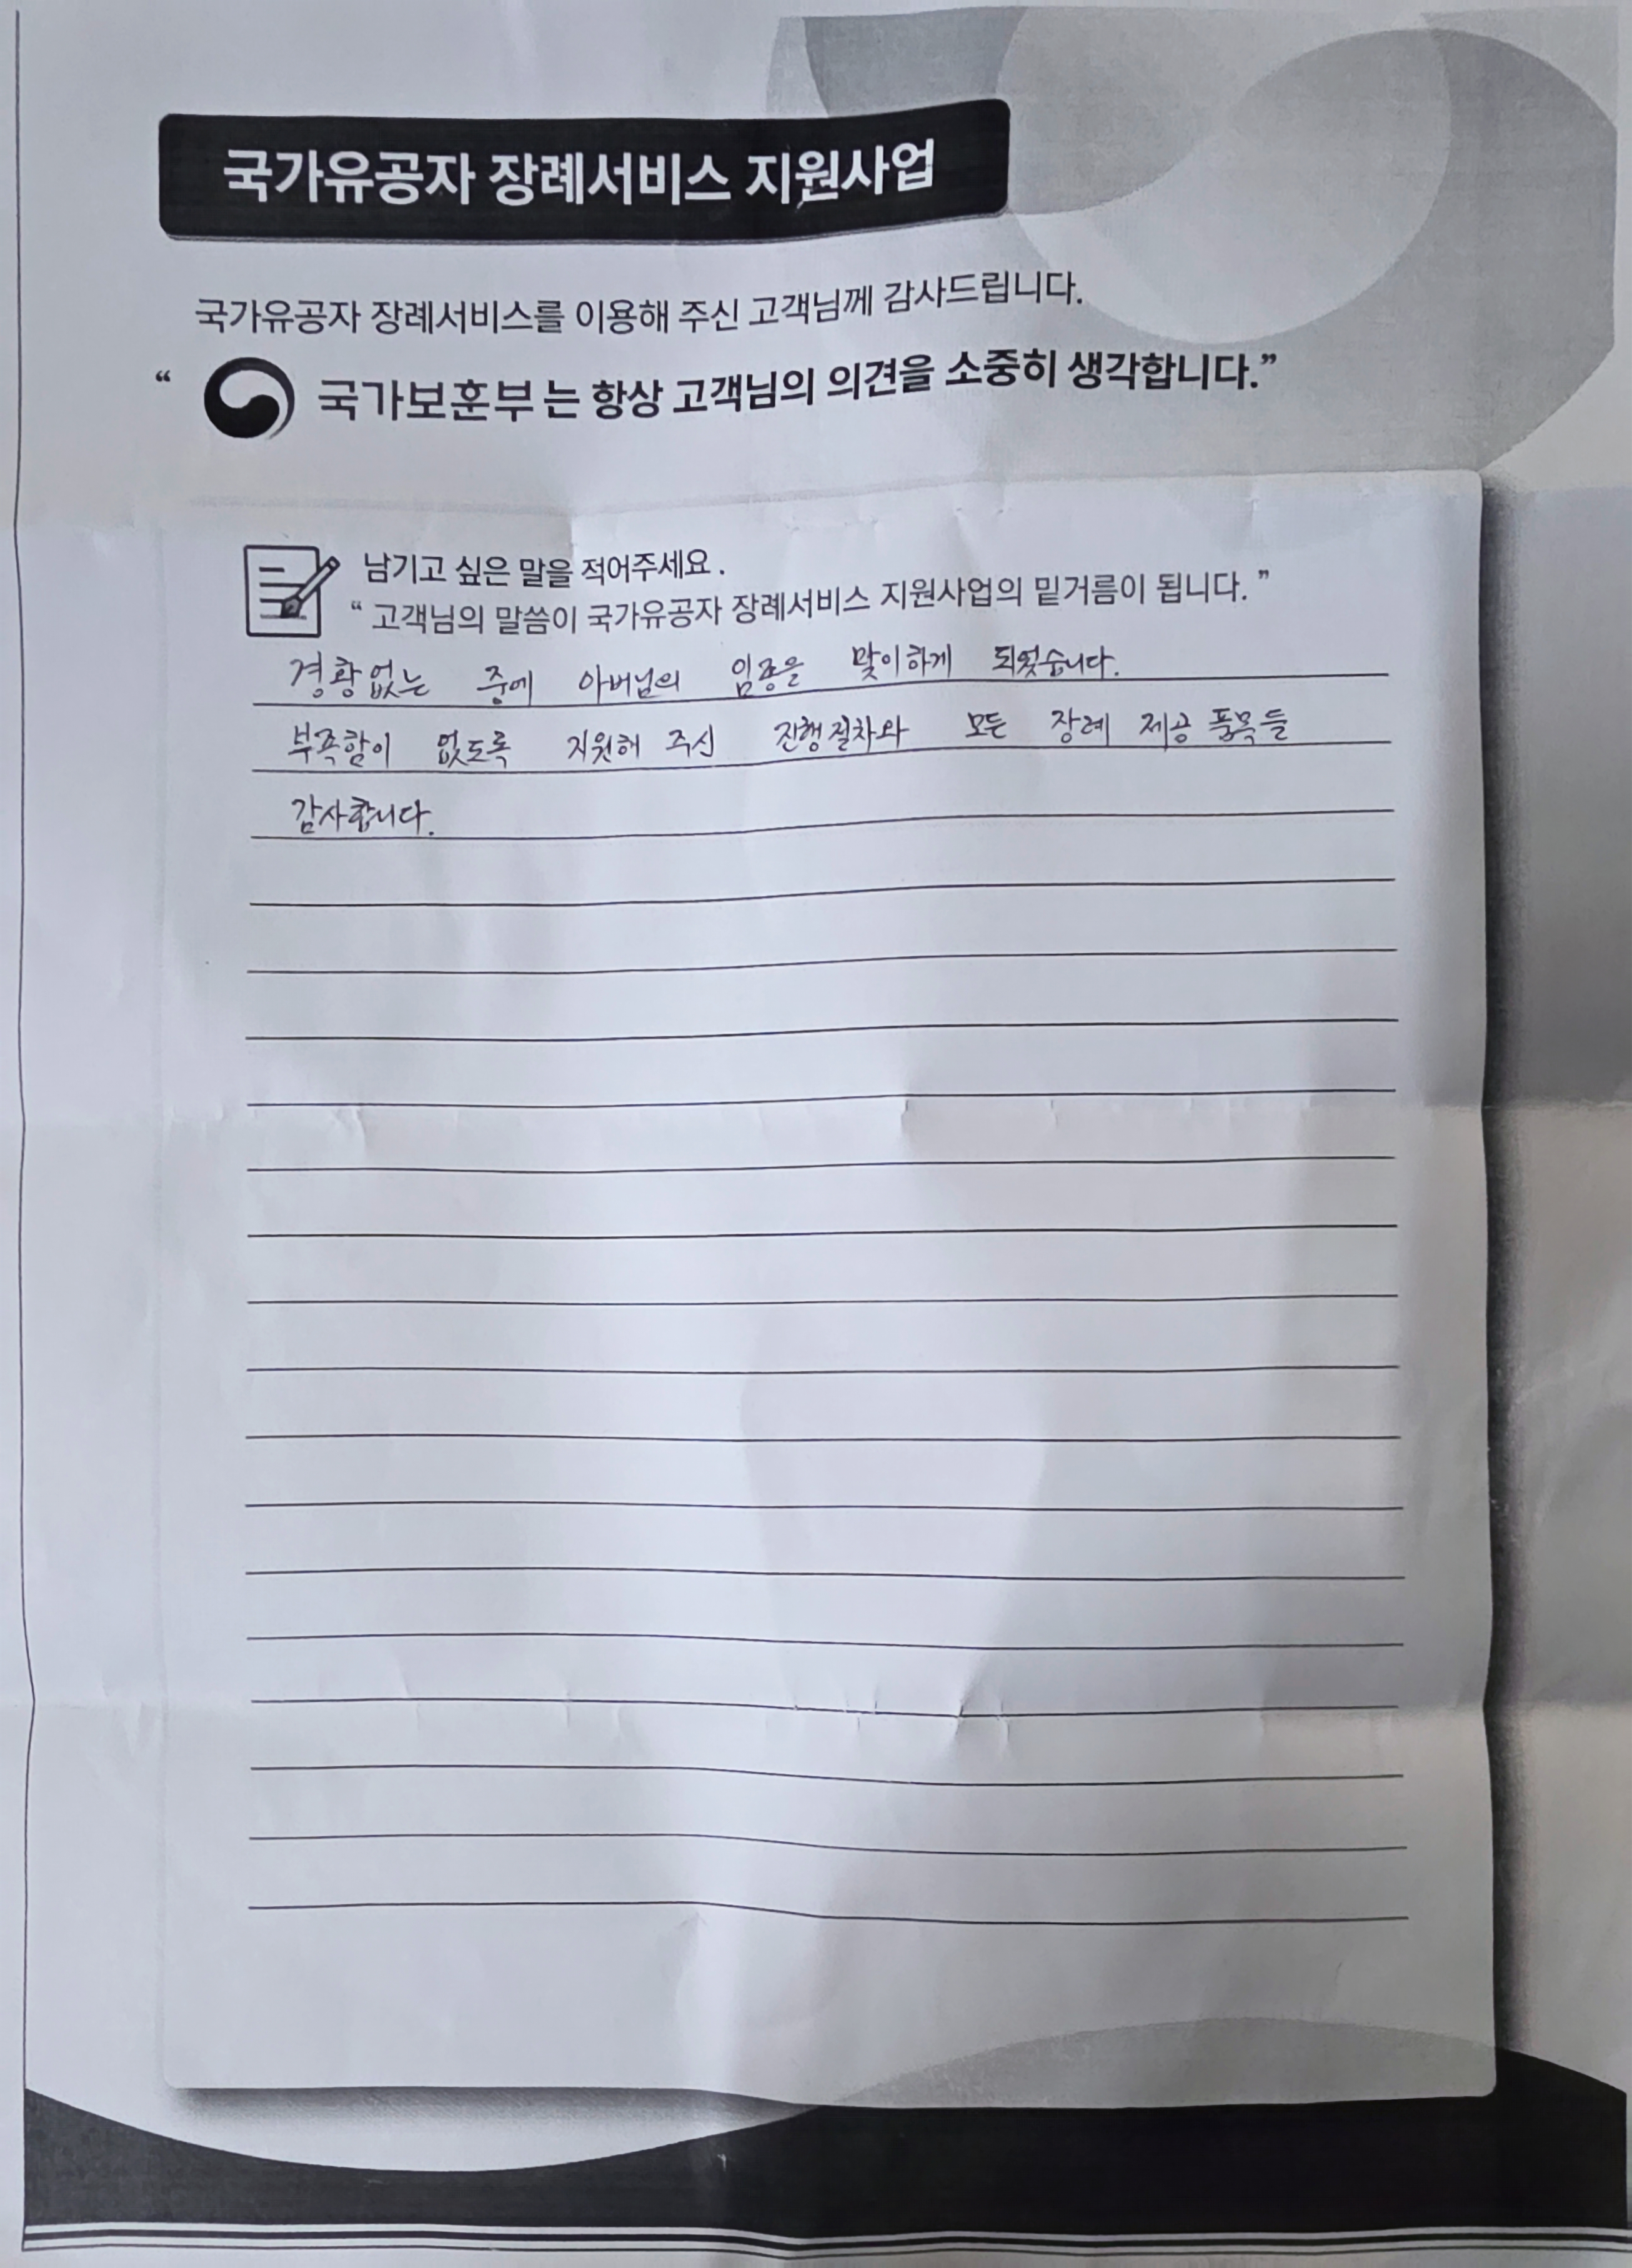 국가유공자 장례서비스 지원사업
국가유공자 장례서비스를 이용해 주신 고객님께 감사드립니다.
“ 국가보훈부 는 항상 고객님의 의견을 소중히 생각합니다.”
남기고 싶은 말을 적어주세요 .
“ 고객님의 말씀이 국가유공자 장례서비스 지원사업의 밑거름이 됩니다. ”
경황없는 중에 아버님의 임종을 맞이하게 되었습니다.
부족함이 없도록 지원해 주신 진행절차와 모든 장례 제공 품목들
감사합니다.